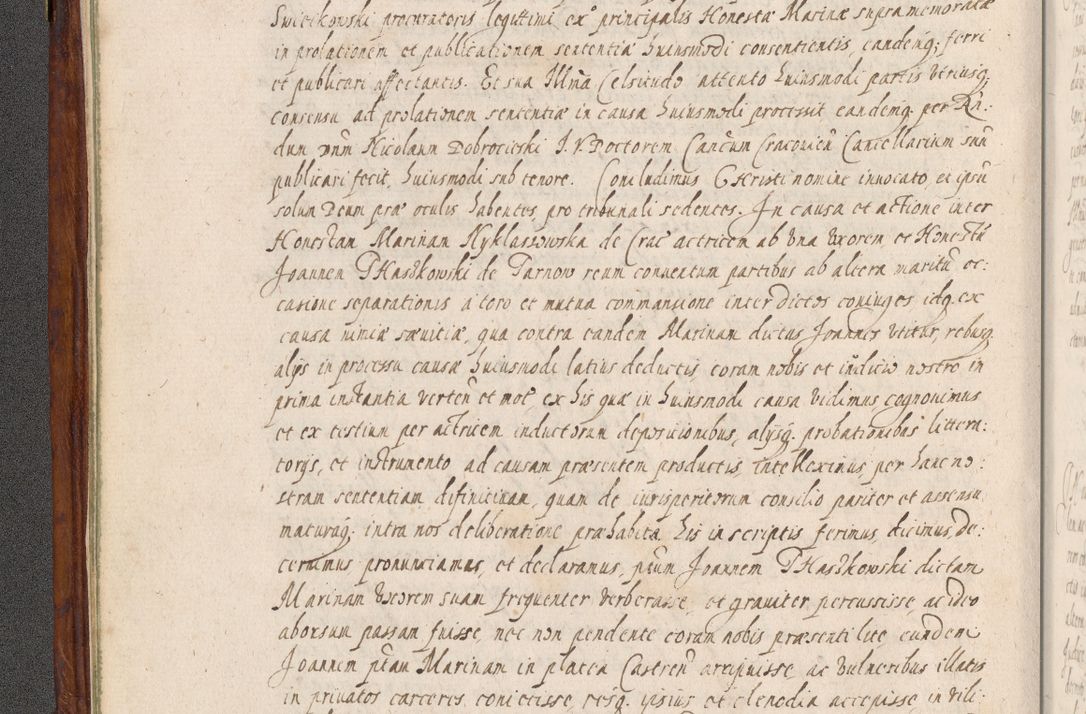 Swieikowski procuratoris legittimi ex principalis Honestæ Marinæ supramemoratæ
in prolationem et publicationem sententiæ huiusmodi consentientis, eandemq; ferri
et publicari affectantis. Et sua Illma Celsitudo attento huiusmodi partis utriusq;
consensu ad prolationem sententiæ in causa huiusmodi processit eandemq. per Rn:
dum Dnm Nicolaum Dobrocieski I. V. Doctorem Cancum Cracovien Cancellarium suu
publicari fecit, huiusmodi sub tenore. Concludimus CHristi nomine invocato, et ipsu
solum Deum præ oculis habentes, pro tribunali sedentes. In causa et actione inter
Honestam Marinam Nyklaszowska de Crac actricem ab una uxorem et Honestu
Joannem THaszkowski de Tarnow reum conventum partibus ab altera maritu oc:
casione separationis a toro et mutua commansione inter dictos coniuges idq. ex
causa nimiæ sævitiæ, qua contra eandem Marinam dictus Joannes utitur, rebusq.
alijs in processu causæ huiusmodi latius deductis, coram nobis et iudicio nostro in
prima instantia verten et mot, ex his quæ in huiusmodi causa vidimus cognovimus
et ex testium per actricem inductorum depositionibus, alijsq. probationibus littera:
torijs, et instrumento ad causam præsentem productis, intelleximus, per hanc no:
stram sententiam difinitivam, quam de iurisperitorum consilio pariter et assensu
maturaq; intra nos deliberatione præhabita his in scriptis ferimus, dicimus, de:
cernimus pronunciamus, et declaramus, ptum Joannem THaszkowski dictam
Marinam uxorem suam frequenter verberasse, et graviter percussisse, ac ideo
aborsum passam fuisse, nec non pendente coram nobis præsenti lite eundem
Joannem ptam Marinam in platea Castren arripuisse, ac vulneribus illatis
in privatos carceres coniecisse, resq. ipsius et clenodia accepisse, in vili: